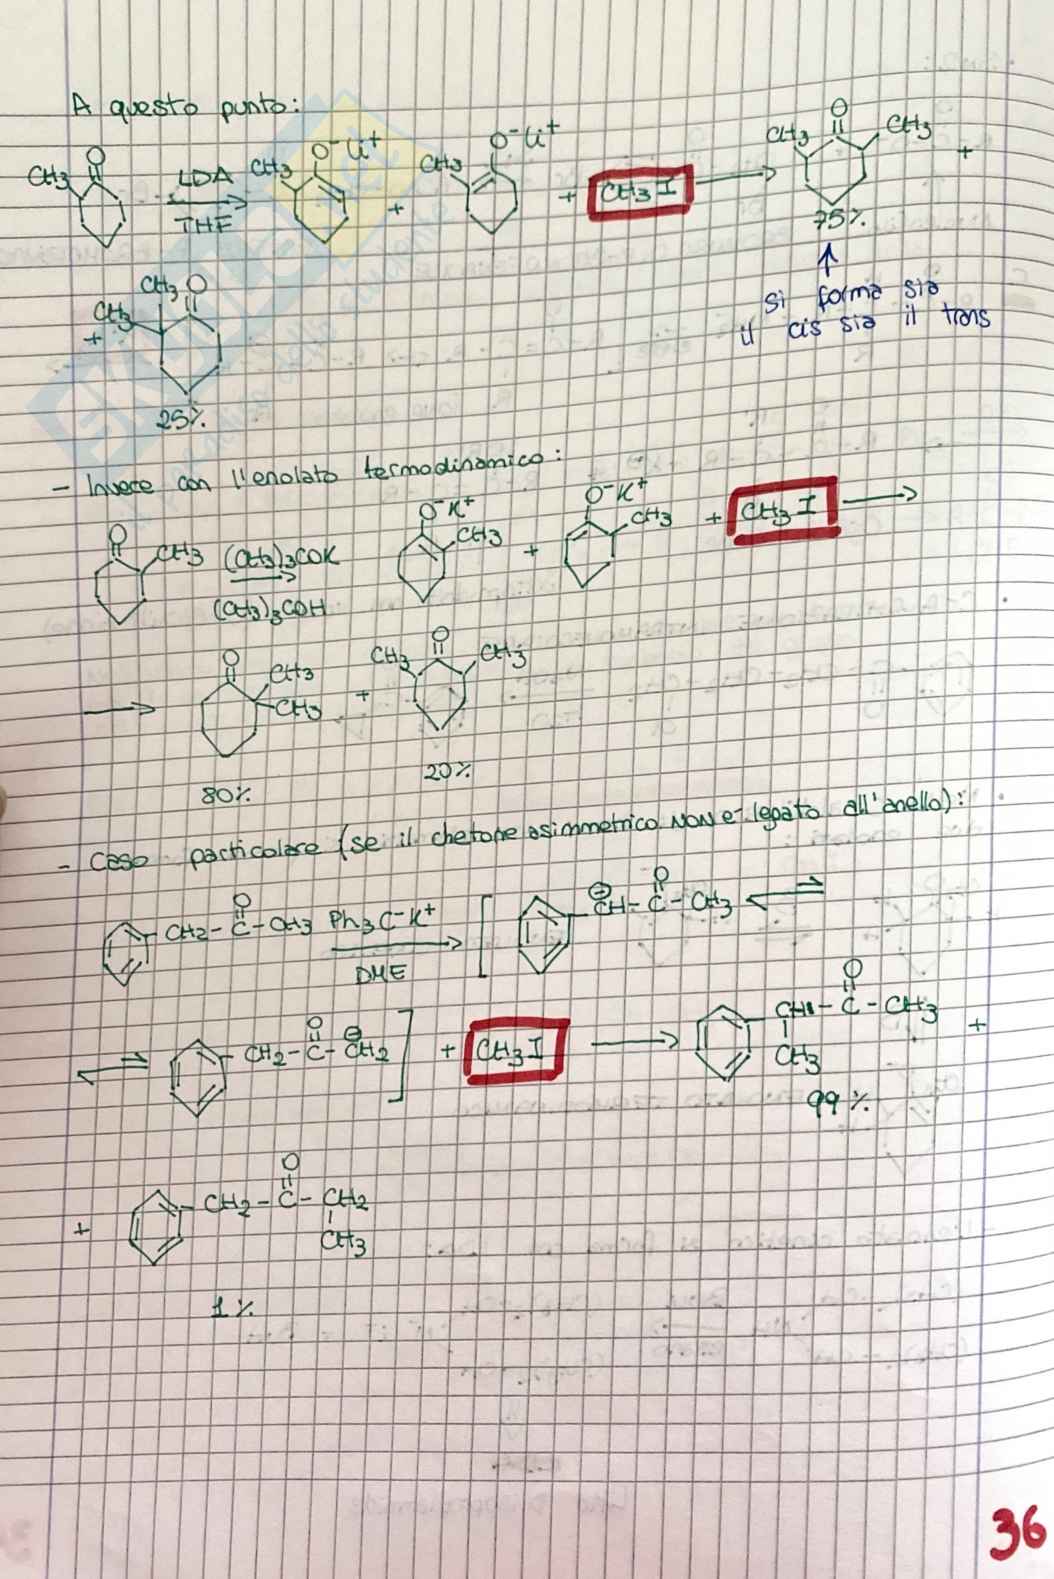 A questo punto:
CH3 O LDA THF CH3 O⁻Li⁺ + CH3 O⁻Li⁺ + CH3I → CH3 O CH3 +
75%
↑
si forma sia
il cis sia il trans
+ CH3 CH3 O
25%
- Invece con l'enolato termodinamico:
O CH3 (CH3)3COK (CH3)3COH O⁻K⁺ CH3 + O⁻K⁺ CH3 + CH3I →
→ O CH3 CH3 + CH3 O CH3
80% 20%
- Caso particolare (se il chetone asimmetrico NON e' legato all'anello):
CH2-C-CH3 O Ph3C⁻K⁺ DME [ ⊖ CH-C-CH3 O ⇌
⇌ CH2-C-CH2 O ⊖ ] + CH3I → CH-C-CH3 O CH3 +
99%
+ CH2-C-CH2 O CH3
1%
36